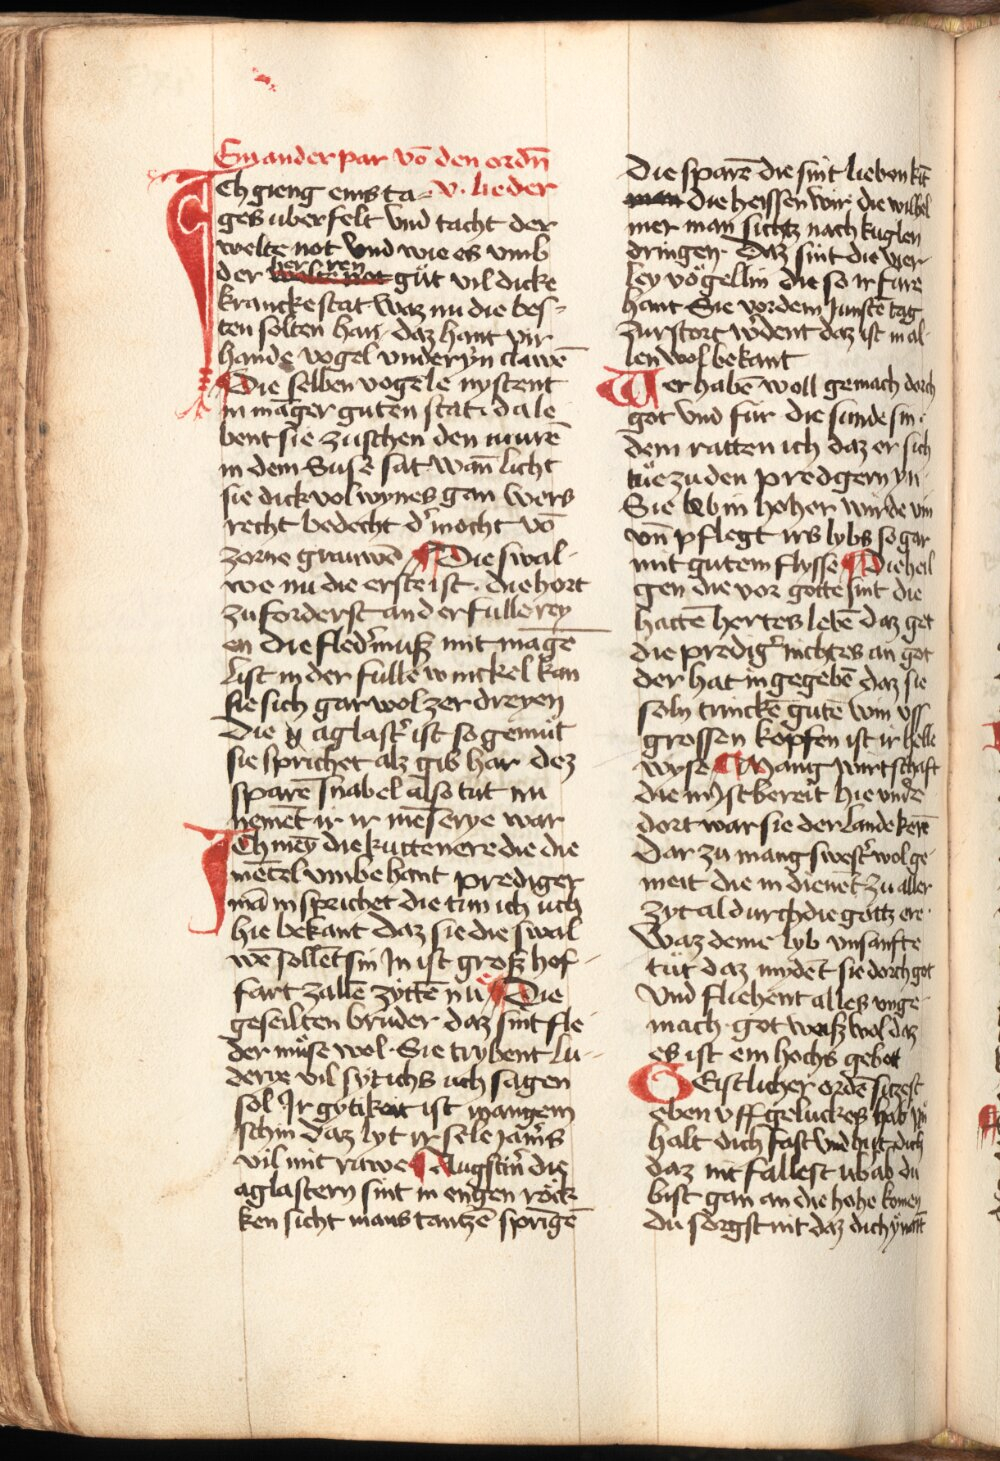 Ein ander par vō den ordn̄
v. lieder
Ich gieng eins ta-
ges uber felt vnd tacht der
welte not vnd wie es vmb
der herren gůt vil dicke
krancke stat waz nu die bes-
ten solten han daz hant vir
hande vogel vnder yn clawē
Die selben vogele nystent
in māger guten stat da le
bent sie zuschen den murē
in dem Suse sat wan̄ licht
sie dick vol wynes gan wers
recht bedecht d' mocht vō
zorne grauwē Die swal-
we nu die erste ist die hort
zu forderst an der fulle rey
en die fled'muß mit māgē
list in der fulle winckel kan
sie sich gar wol zer dreyen
Die aglast' ist so gemůt
sie sprichet alz gib har dez
sparē snabel also tut nu
nemēt ir ir mēserye war
Ich mey die kuttenere die die
mētel vmbe hant prediger
mā in sprichet die tun ich uch
hie bekant daz sie die swal
wē sollēt sin In ist groß hof-
fart zallē zyttē na Die
geseilten bruder daz sint fle-
der můse wol Sie trybent lu-
derye vil syt ichs uch sagen
sol Ir gytikeit ist mangem
schin daz lyt ir sele jam's
vil mit rawe Augstin' die
aglastern sint in engen röck
ken sicht mans tantzē sprigē
Die sparē die sint lieben kīt
die heissen wir die wilhel
mer man sichtz nach kuglen
dringen Daz sint die vier
ley vögellin die so ir fure
hant Sie vor dem Junstē tag
zurstort w'dent daz ist in al-
len wol bekant
Wer habē woll gemach dorch
got vnd für die sunde sin
dem ratten ich daz er sich
tüe zu den predgern yn
Sie in hoher wirde vin
vn̄ pflegt irs lybs so gar
mit gutem flysse Die heil
gen die vor gotte sint die
hattē hertes lebē daz get
die predig' nichtes an got
der hat in gegebē daz sie
soln trinckē gutē win vss
grossen köpfen ist ir helle
wyse Mang wirtschaft
die in ist bereit hie vnd'e
dort war sie der lande kerē
Dar zu mang swest' wol ge
meit die in dienēt zu aller
zyt al durch die gottz ere
Waz deme lyb vnsanfte
tůt daz mydēt sie dorch got
Vnd fliehent alles vnge-
mach got weiß wol daz
es ist ein hochs gebot
Geistlicher ordē sitzest
eben vff geluckes rad vn̄
halt dich fast vnd hut dich
daz nit fallest ab ab du
bist gan an die hohe komen
du sorgst nit daz dich ymātt